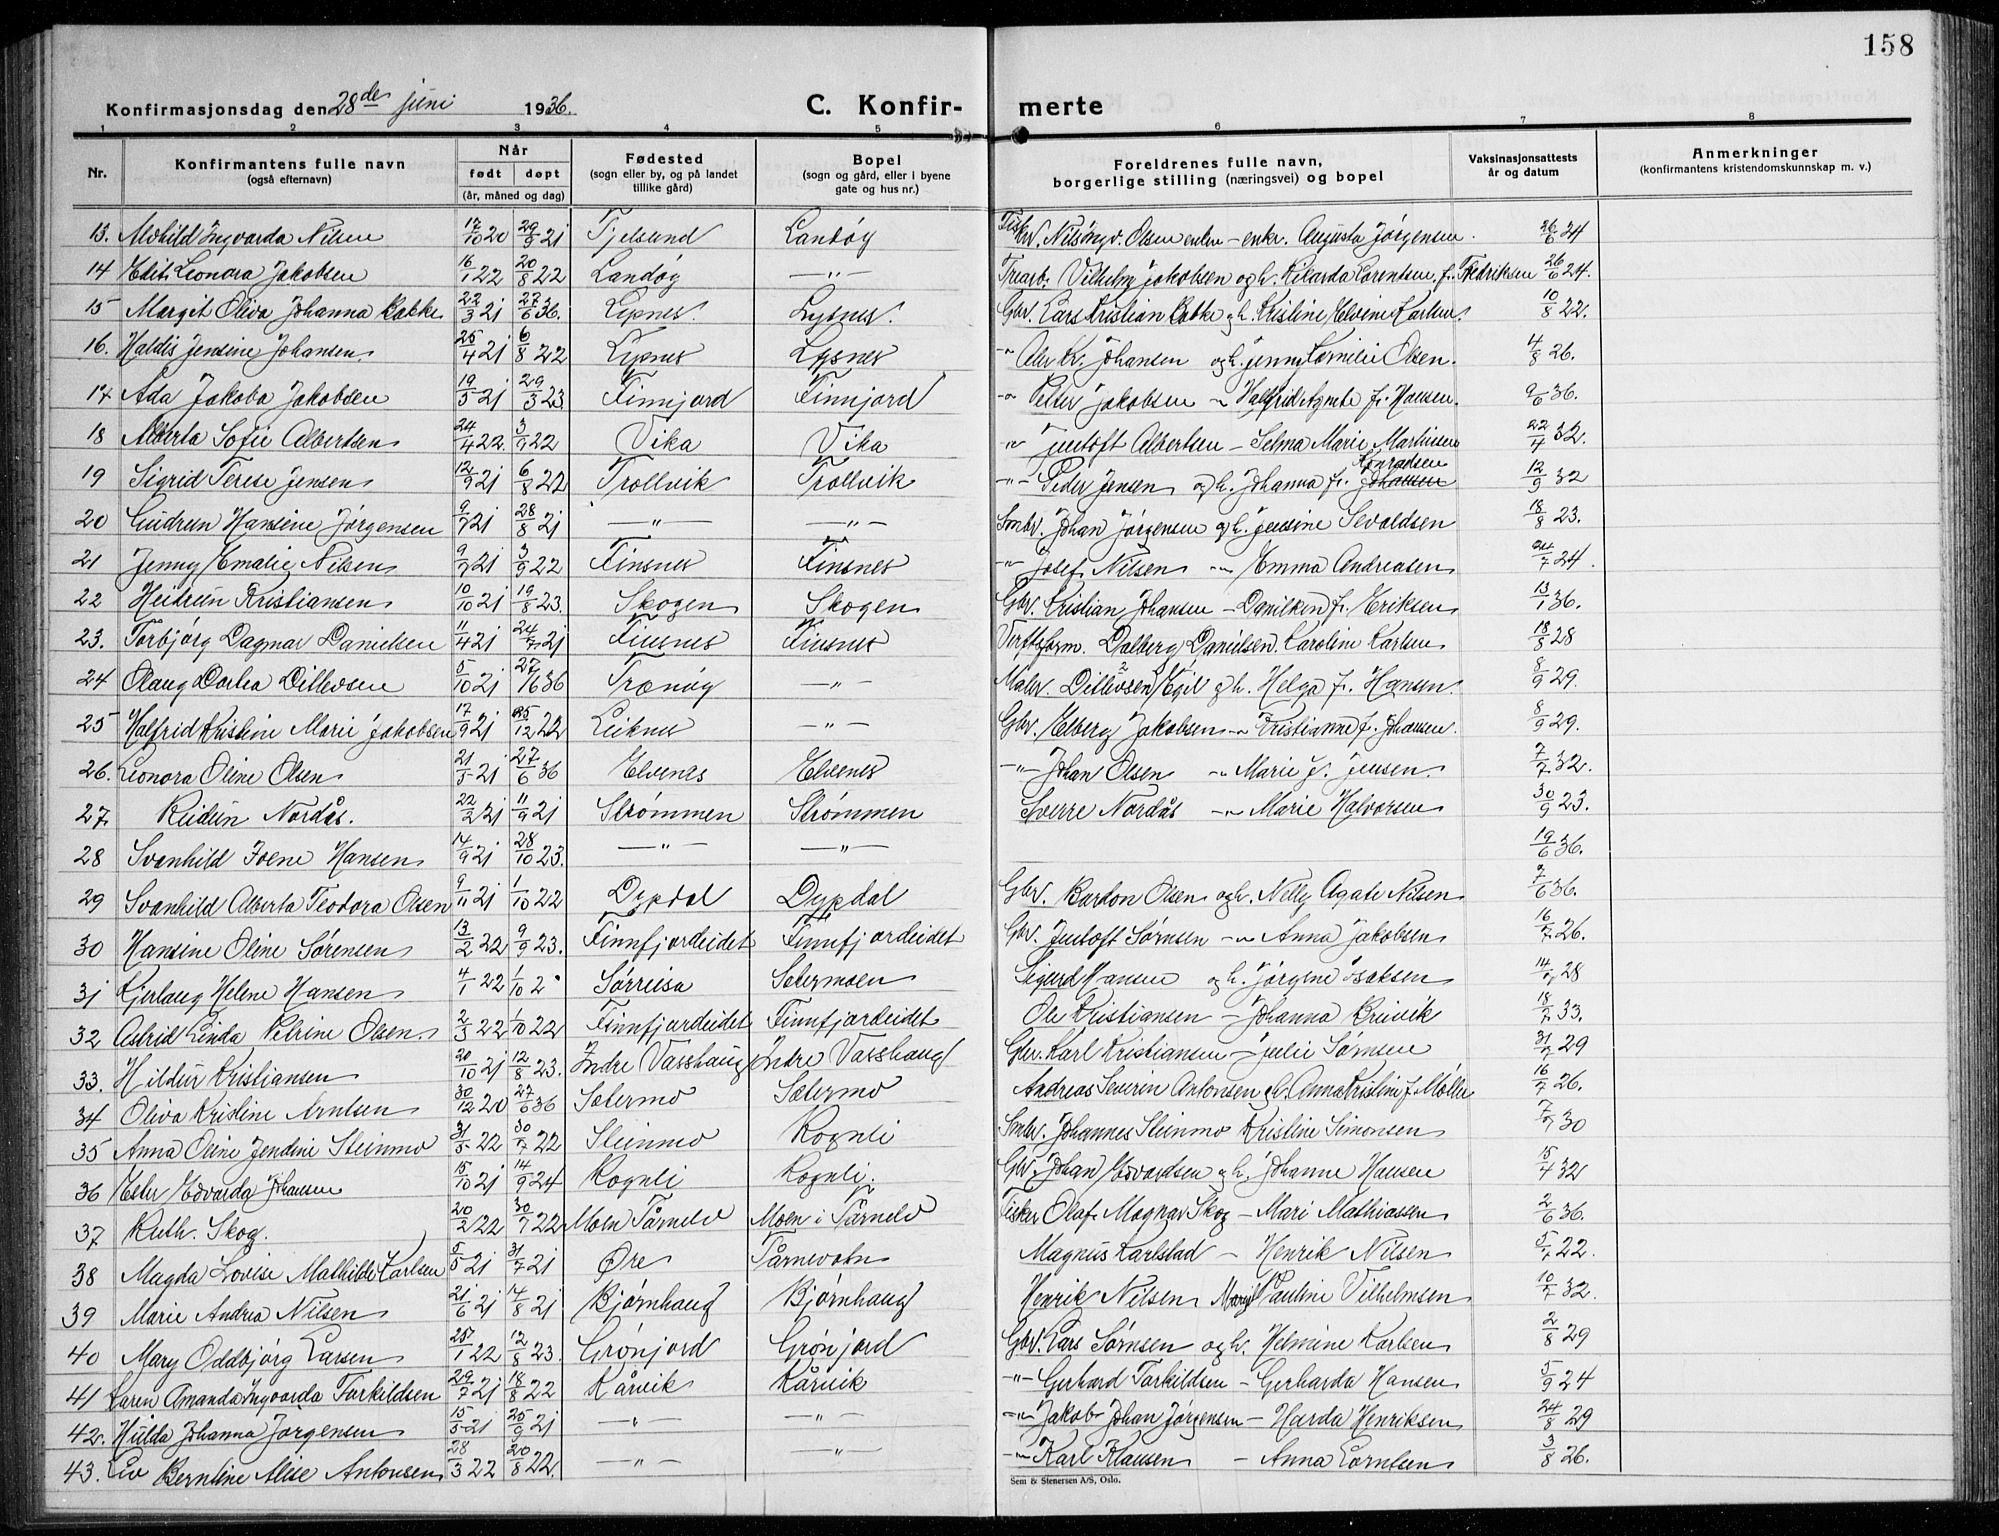 158
Konfirmasjonsdag den 28de juni 1936. C. Konfir- merte
1 2 3 4 5 6 7 8
Nr. Konfirmantens fulle navn (også efternavn) Når født døpt (år, måned og dag) Fødested (sogn eller by, og på landet tillike gård) Bopel (sogn og gård, eller i byene gate og hus nr.) Foreldrenes fulle navn, borgerlige stilling (næringsvei) og bopel Vaksinasjonsattests år og datum Anmerkninger (konfirmantens kristendomskunnskap m. v.)
13. Alvhild Ingvarda Nilsen 17/10 20 29/8 21 Tjelsund Landøy Fisker. Nils Ingv. Olsen enkem - enkr. Augusta Jørgensen. 26/6 24
14 Edit Leonora Jakobsen 16/1 22 20/8 22 Landøy —"— Trearb. Vilhelm Jakobsen og h. Rikarda Lorentsen f. Fredriksen 26/6 24.
15 Margit Oliva Johanna Bakke 22/3 21 27/6 36. Lysnes. Lysnes. Gbr. Lars Kristian Bakke og h. Kristine Elvine Karlsen. 10/8 22.
16. Haldis Jensine Johansen 25/4 21 6/8 22 Lysnes Lysnes -"- Alv Kr. Johansen og h. Jenny Kornelie Olsen. 4/8 26.
17 Ada Jakoba Jakobsen 19/5 21 29/3 23 Finnjord Finnjord -"- Peter Jakobsen -"- Halfrid Agnete f. Hansen. 9/6 36.
18 Alberta Sofie Albertsen 24/4 22. 3/9 22 Vika Vika -"- Jentoft Albertsen - Selma Marie Martinsen 22/4 32.
19 Sigrid Terese Jensen 12/9 21 6/8 22 Trollvik Trollvik -"- Peder Jensen og h. Johanna f. Johansen Konradsen 12/9 32
20 Gudrun Hansine Jørgensen 9/7 21 28/8 21 —"— —"— Smbr. Johan Jørgensen og h. Jensine Sevaldsen 18/8 23.
21 Jenny Emalie Nilsen 9/7 21 3/9 22 Finsnes Finsnes -"- Josef Nilsen -"- Emma Andreasen 24/7 24.
22 Heidrun Kristiansen 10/10 21 19/8 23. Skogen Skogen Gbr. Kristian Johansen - Danilken f. Eriksen 13/1 36.
23. Torbjørg Dagmar Danielsen 11/4 21 24/7 21 Finsnes Finsnes Verftsform. Dalberg Danielsen. Karoline Karlsen 18/8 28
24 Olaug Dorlea Ditlevsen 5/10 21 27/6 36 Tranøy —"— Maler. Ditlevsen Egil og h. Helga f. Hansen. 8/9 29.
25 Halfrid Kristine Marie Jakobsen 17/9 21 25/12 22 Leiknes —"— Gbr. Elberg Jakobsen -"- Kristianne f. Johansen. 8/9 29.
26. Leonora Oline Olsen 21/5 21 27/6 36 Elvenes Elvenes -"- Johan Olsen -"- Marie f. Jensen. 7/7 32.
27. Reidun Nordås. 22/2 21 11/9 21 Strømmen Strømmen Sverre Nordås -"- Marie Halvorsen 30/9 23.
28 Svanhild Joene Hansen 14/9 21 28/10 23. —"— —"— 19/6 36.
29 Svanhild Alberta Teodora Olsen 9/11 21 1/10 22 Dypdal Dypdal Gbr. Bardon Olsen og h. Nelly Agate Nilsen 7/6 36.
30 Hansine Oline Sørensen 13/2 22 9/9 23. Finnfjordeidet Finnfjordeidet Gbr. Jentoft Sørnsen -"- Anna Jakobsen 16/7 26.
31 Kjerlaug Helene Hansen 4/1 22 1/10 2 Sørreisa Sætermoen Sigurd Hansen og h. Jørgine Isaksen 14/7 28
32 Astrid Linda Petrine Olsen. 2/3 22 1/10 22 Finnfjordeidet Finnfjordeidet Ole Kristiansen - Johanna Breivik 18/7 33.
33. Hildur Kristiansen 20/10 21 12/8 23. Indre Vasshaug Indre Vasshaug Gbr. Karl Kristiansen - Julie Sørnsen 31/7 29
34 Oliva Kristine Arntsen 30/12 20 27/6 36 Sætermo Sætermo Andreas Severin Antonsen og h. Anna Kristine f. Møller 16/7 26.
35 Anna Oline Jendine Steinmo 31/5 22 30/7 22 Steinmo Rognli Smbr. Johannes Steinmo Kristine Simonsen 7/7 30
36 Ester Edvarda Johansen 15/10 21 14/9 24 Rognli Rognli. Gbr. Johan Edvardsen og h. Johanne Hansen 15/4 32
37 Ruth. Skog. 20/2 22 30/7 22 Moen Tårnelv Moen i Tårnelv Fisker Olaf Magnar Skog - Mari Mathiassen 2/6 36.
38 Magda Lovise Mathilde Karlsen 5/5 21 31/7 21 Øre Tårnevatn Magnus Karlstad - Henrik Nilsen 5/7 22.
39 Marie Andrea Nilsen 21/6 21 14/8 21 Bjørnhaug Bjørnhaug Henrik Nilsen Mary Pauline Vilhelmsen 10/7 32.
40 Mary Oddbjørg Larsen 25/1 22 12/8 23. Grønjord Grønjord Gbr. Lars Sørnsen og h. Helmine Karlsen 2/8 29
41 Karen Amanda Ingvarda Torkildsen 29/7 21 18/8 22 Kårvik Kårvik -"- Gerhard Torkildsen - Gerharda Hansen 5/9 24
42. Hulda Johanna Jørgensen 15/5 21 25/9 21 —"— —"— -"- Jakob Johan Jørgensen - Harda Henriksen 24/8 29
43. Liv Berntine Alise Antonsen 28/3 22 20/8 22. —"— —"— -"- Karl Klausen - Anna Lorntsen 3/8 26.
Sem & Stenersen A/S, Oslo.